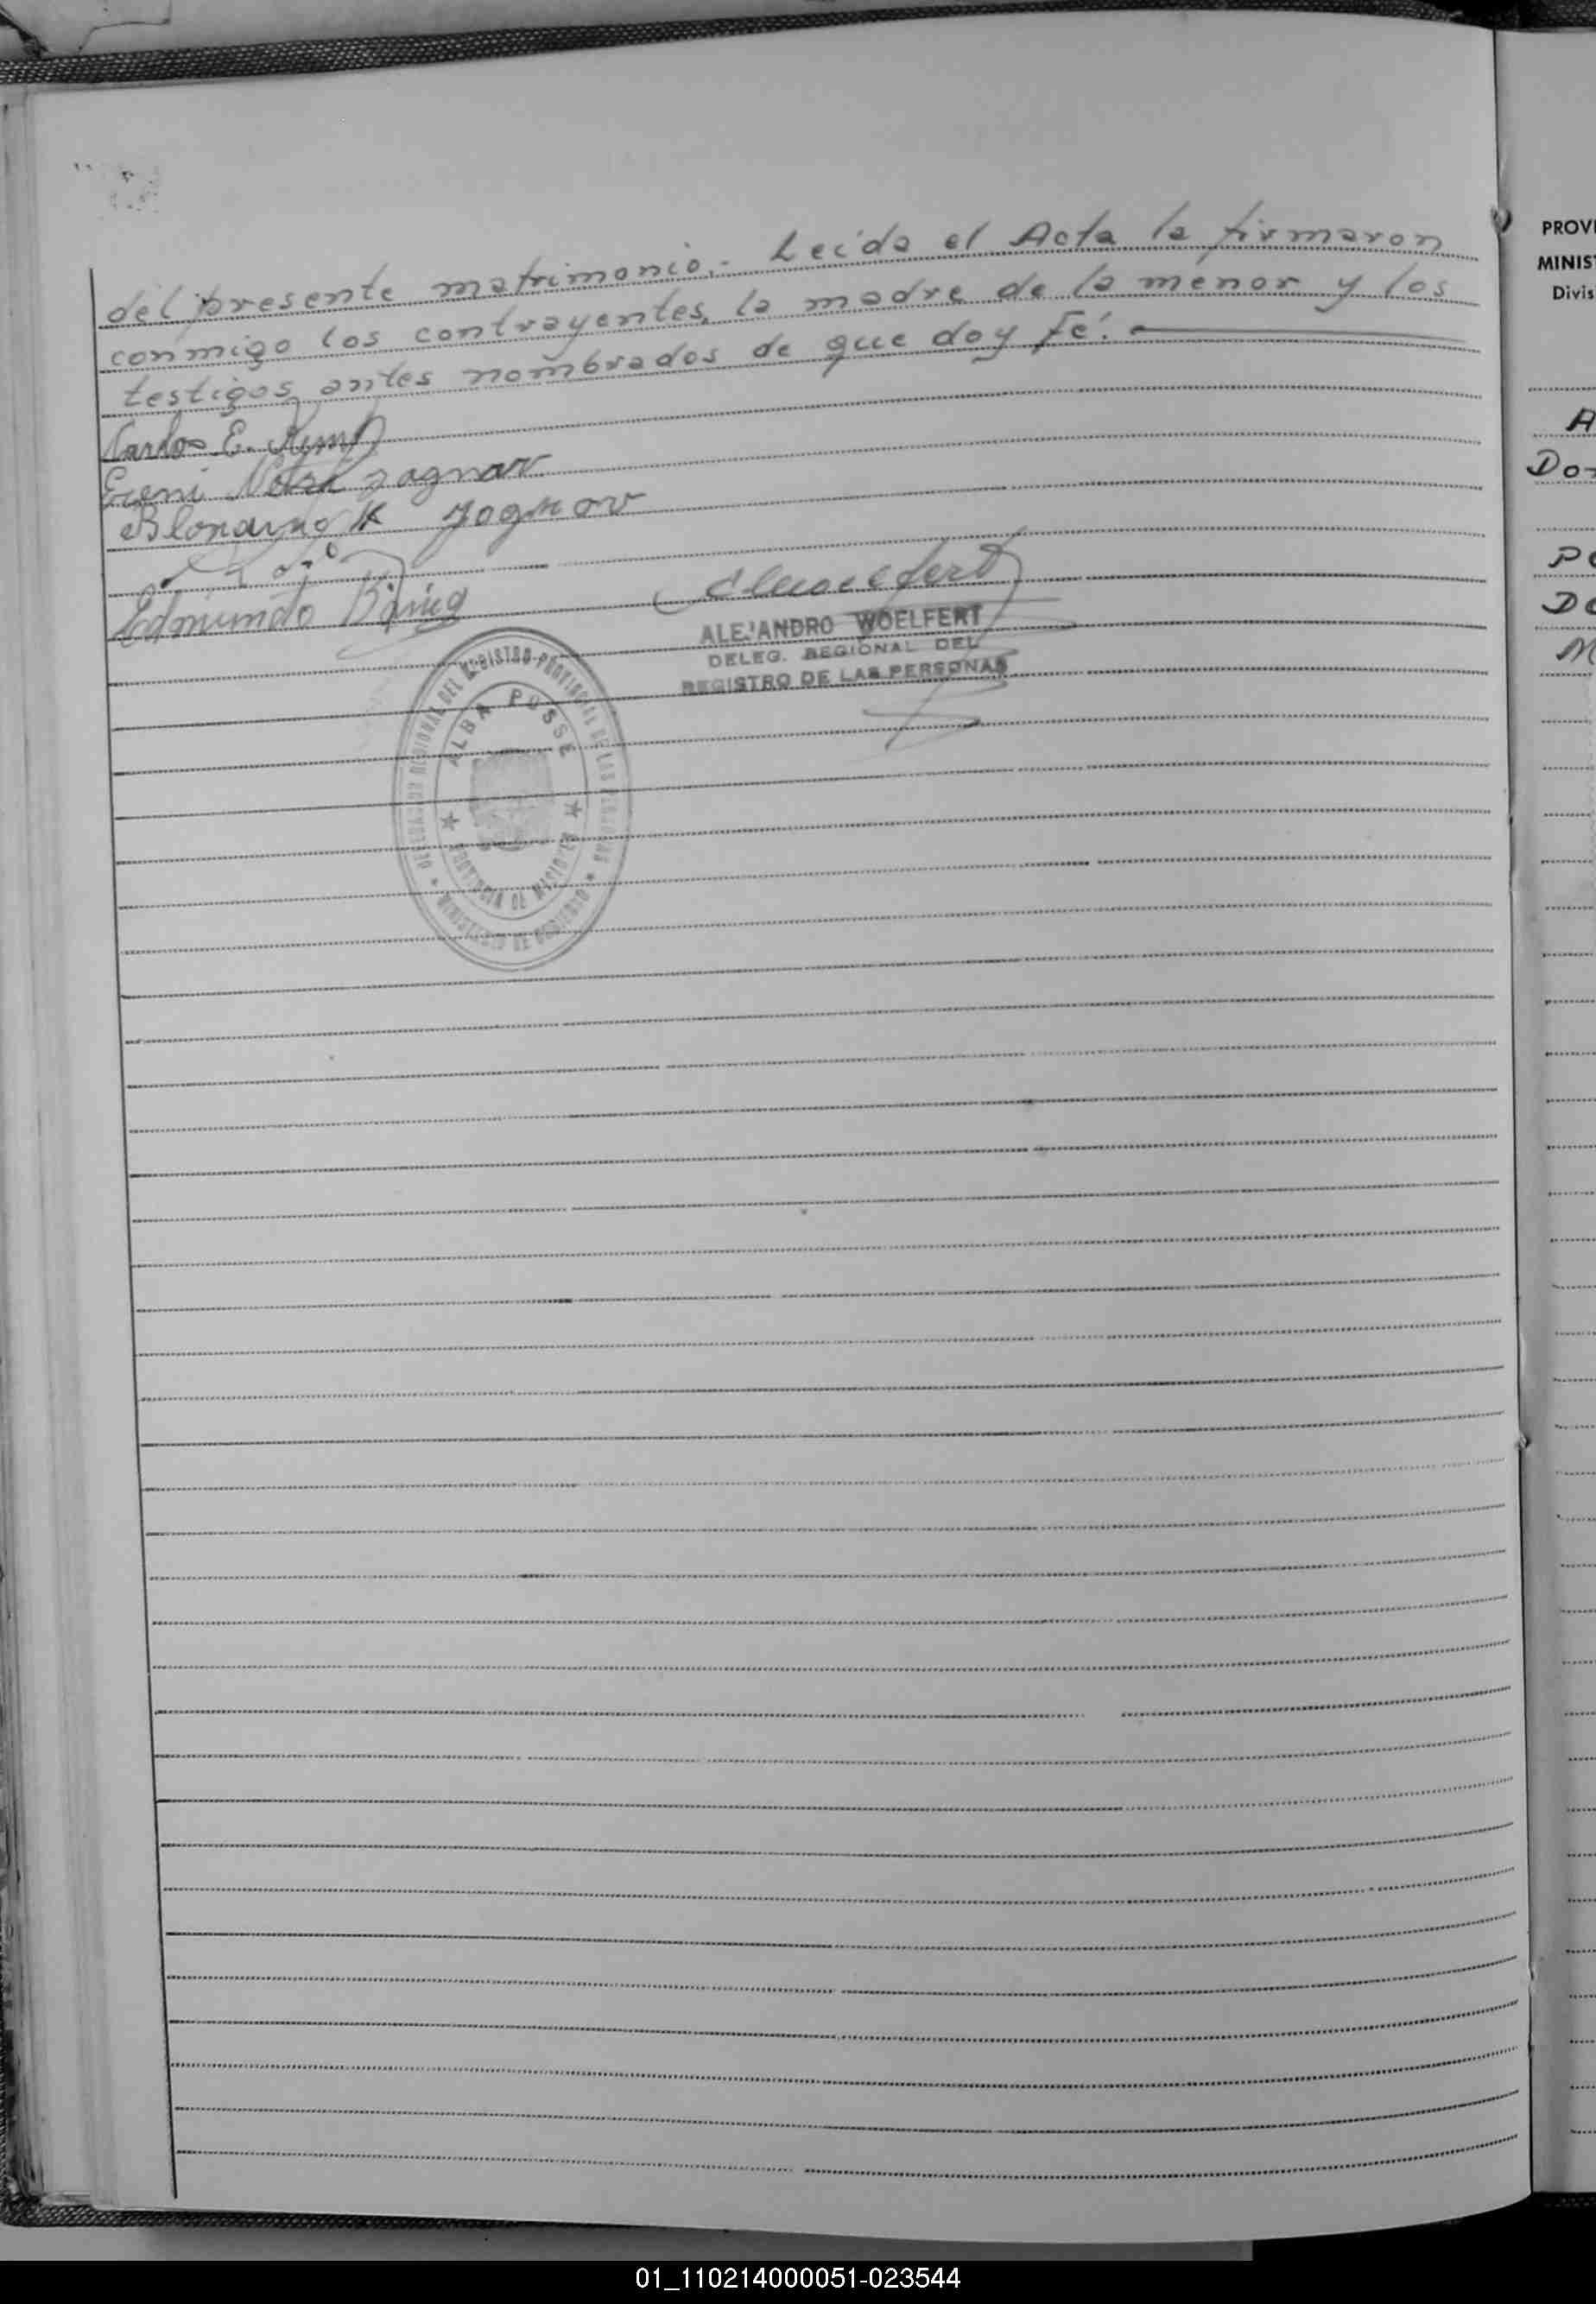 del presente matrimonio.- Leída el Acta la firmaron
conmigo los contrayentes, la madre de la menor y los
testigos antes nombrados de que doy fé.
Carlos E.
Ereni Jagnov
K Jagnov
Edmundo
ALEJANDRO WOELFERT
DELEG. REGIONAL DEL
REGISTRO DE LAS PERSONAS
DELEGACION REGIONAL DEL REGISTRO PROVINCIAL DE LAS PERSONAS
ALBA POSSE
PROVINCIA DE MISIONES
MINISTERIO DE GOBIERNO
PROVI
MINIS
Divis
A
Do
De
M
01_110214000051-023544